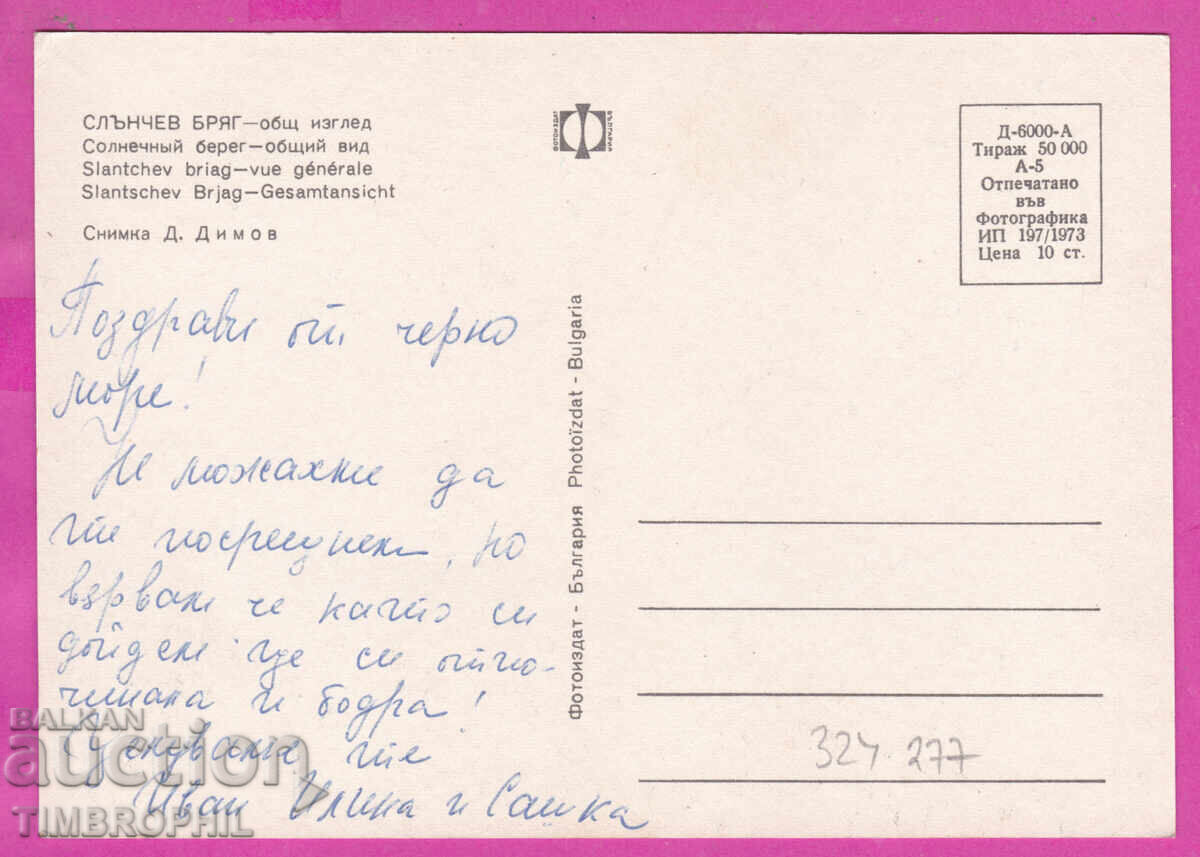 СЛЪНЧЕВ БРЯГ—общ изглед
Солнечный берег—общий вид
Slantchev briag—vue générale
Slantschev Brjag—Gesamtansicht
Снимка Д. Димов
ФОТОИЗДАТ
БЪЛГАРИЯ
Д-6000-А
Тираж 50 000
А-5
Отпечатано
във
Фотографика
ИП 197/1973
Цена 10 ст.
Поздрави от черно
море!
Не можахме да
те посрещнем, но
вярвам че като си
дойдем ще си отпо-
чинала и бодра!
Целуваме те
Иван Илина и Сашка
Фотоиздат - България Photoïzdat - Bulgaria
324 277
BALKAN
auction
TIMBROPHIL